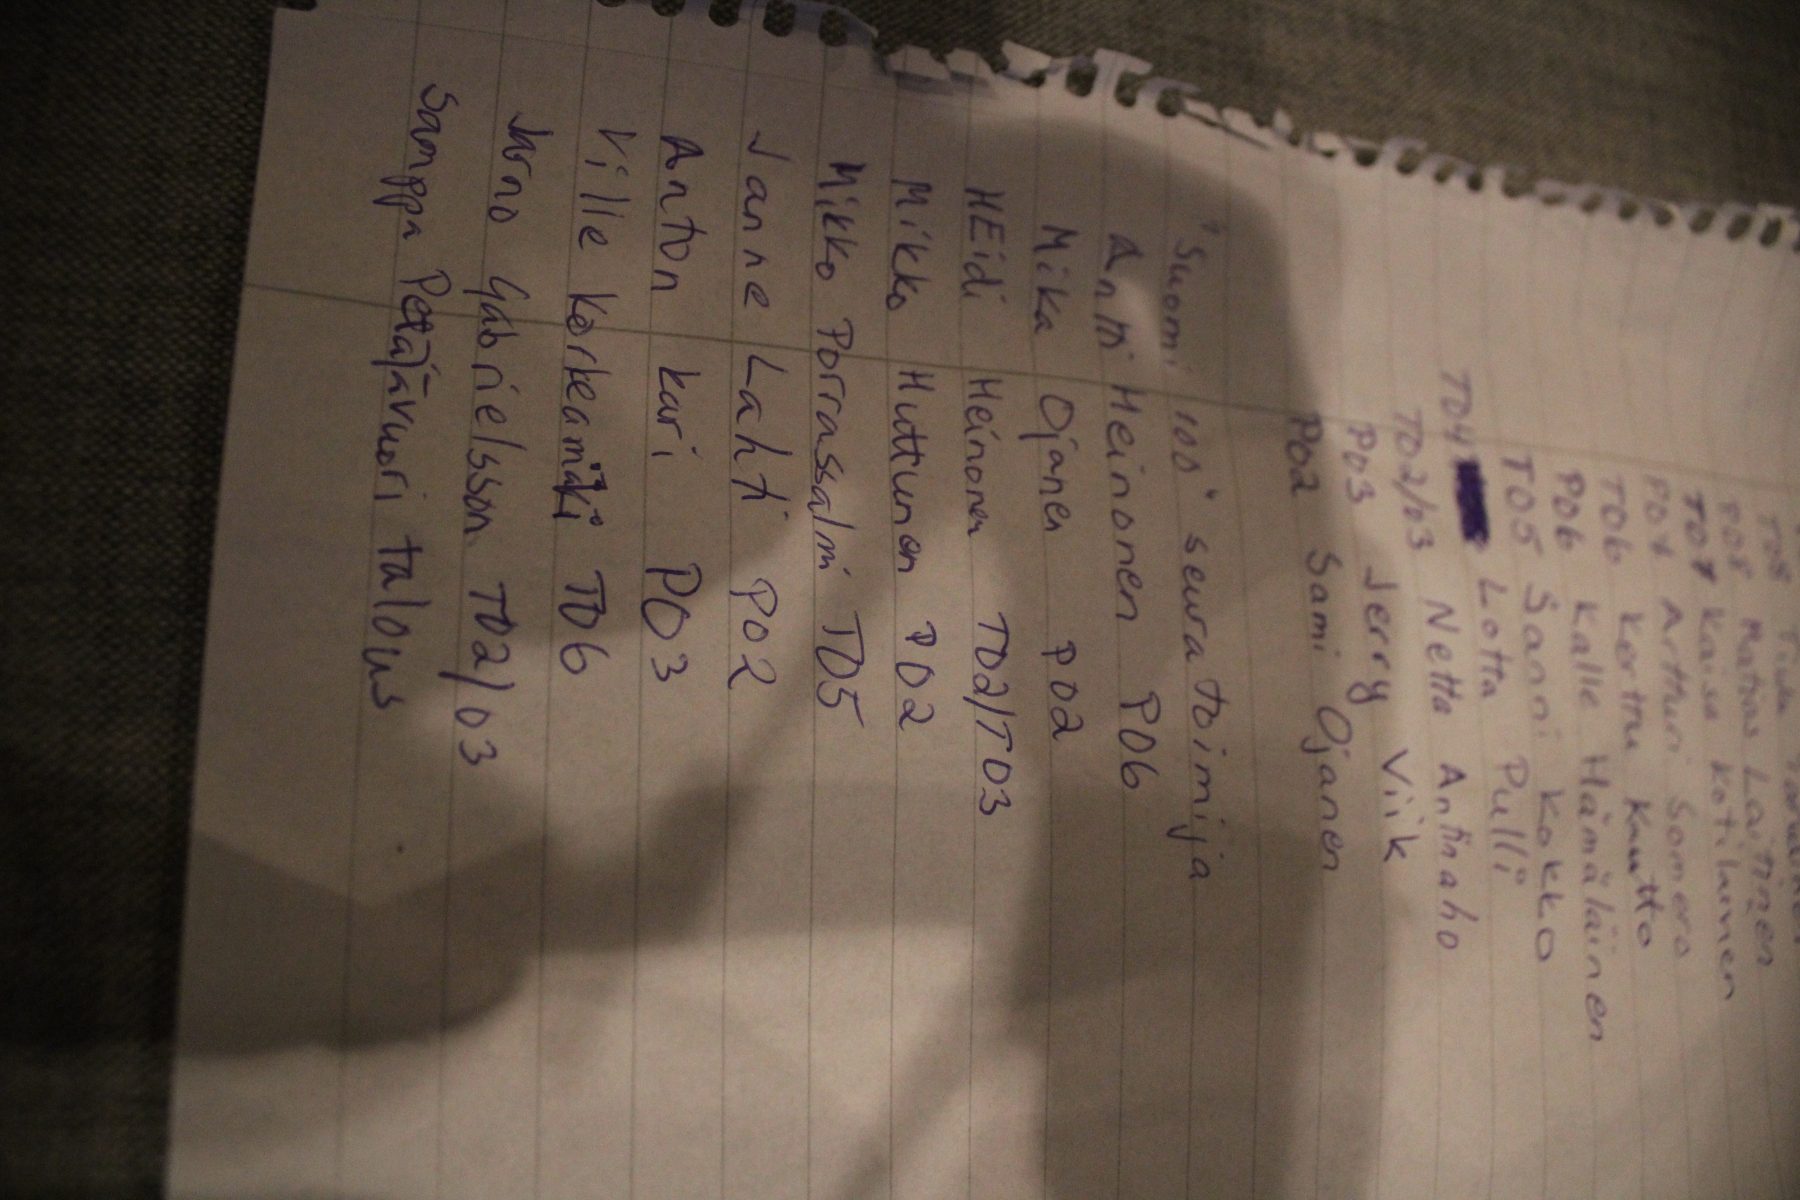 T08
P08 Matias Laitinen
T07 Kaisa Kotilainen
P07 Artturi Somero
T06 Kerttu Kautto
P06 Kalle Hämäläinen
T05 Sanni Kokko
T04 Lotta Pulli
T02/03 Netta Antinaho
P03 Jerry Viik
P02 Sami Ojanen
"Suomi 100" seuratoimija
Anni Heinonen P06
Mika Ojanen P02
HEidi Heinonen T02/T03
Mikko Huttunen P02
Mikko Porrassalmi T05
Janne Lahti P02
Anton Kari P03
Ville Korkeamäki T06
Jarno Gabrielsson T02/03
Samppa Petäjävuori talous